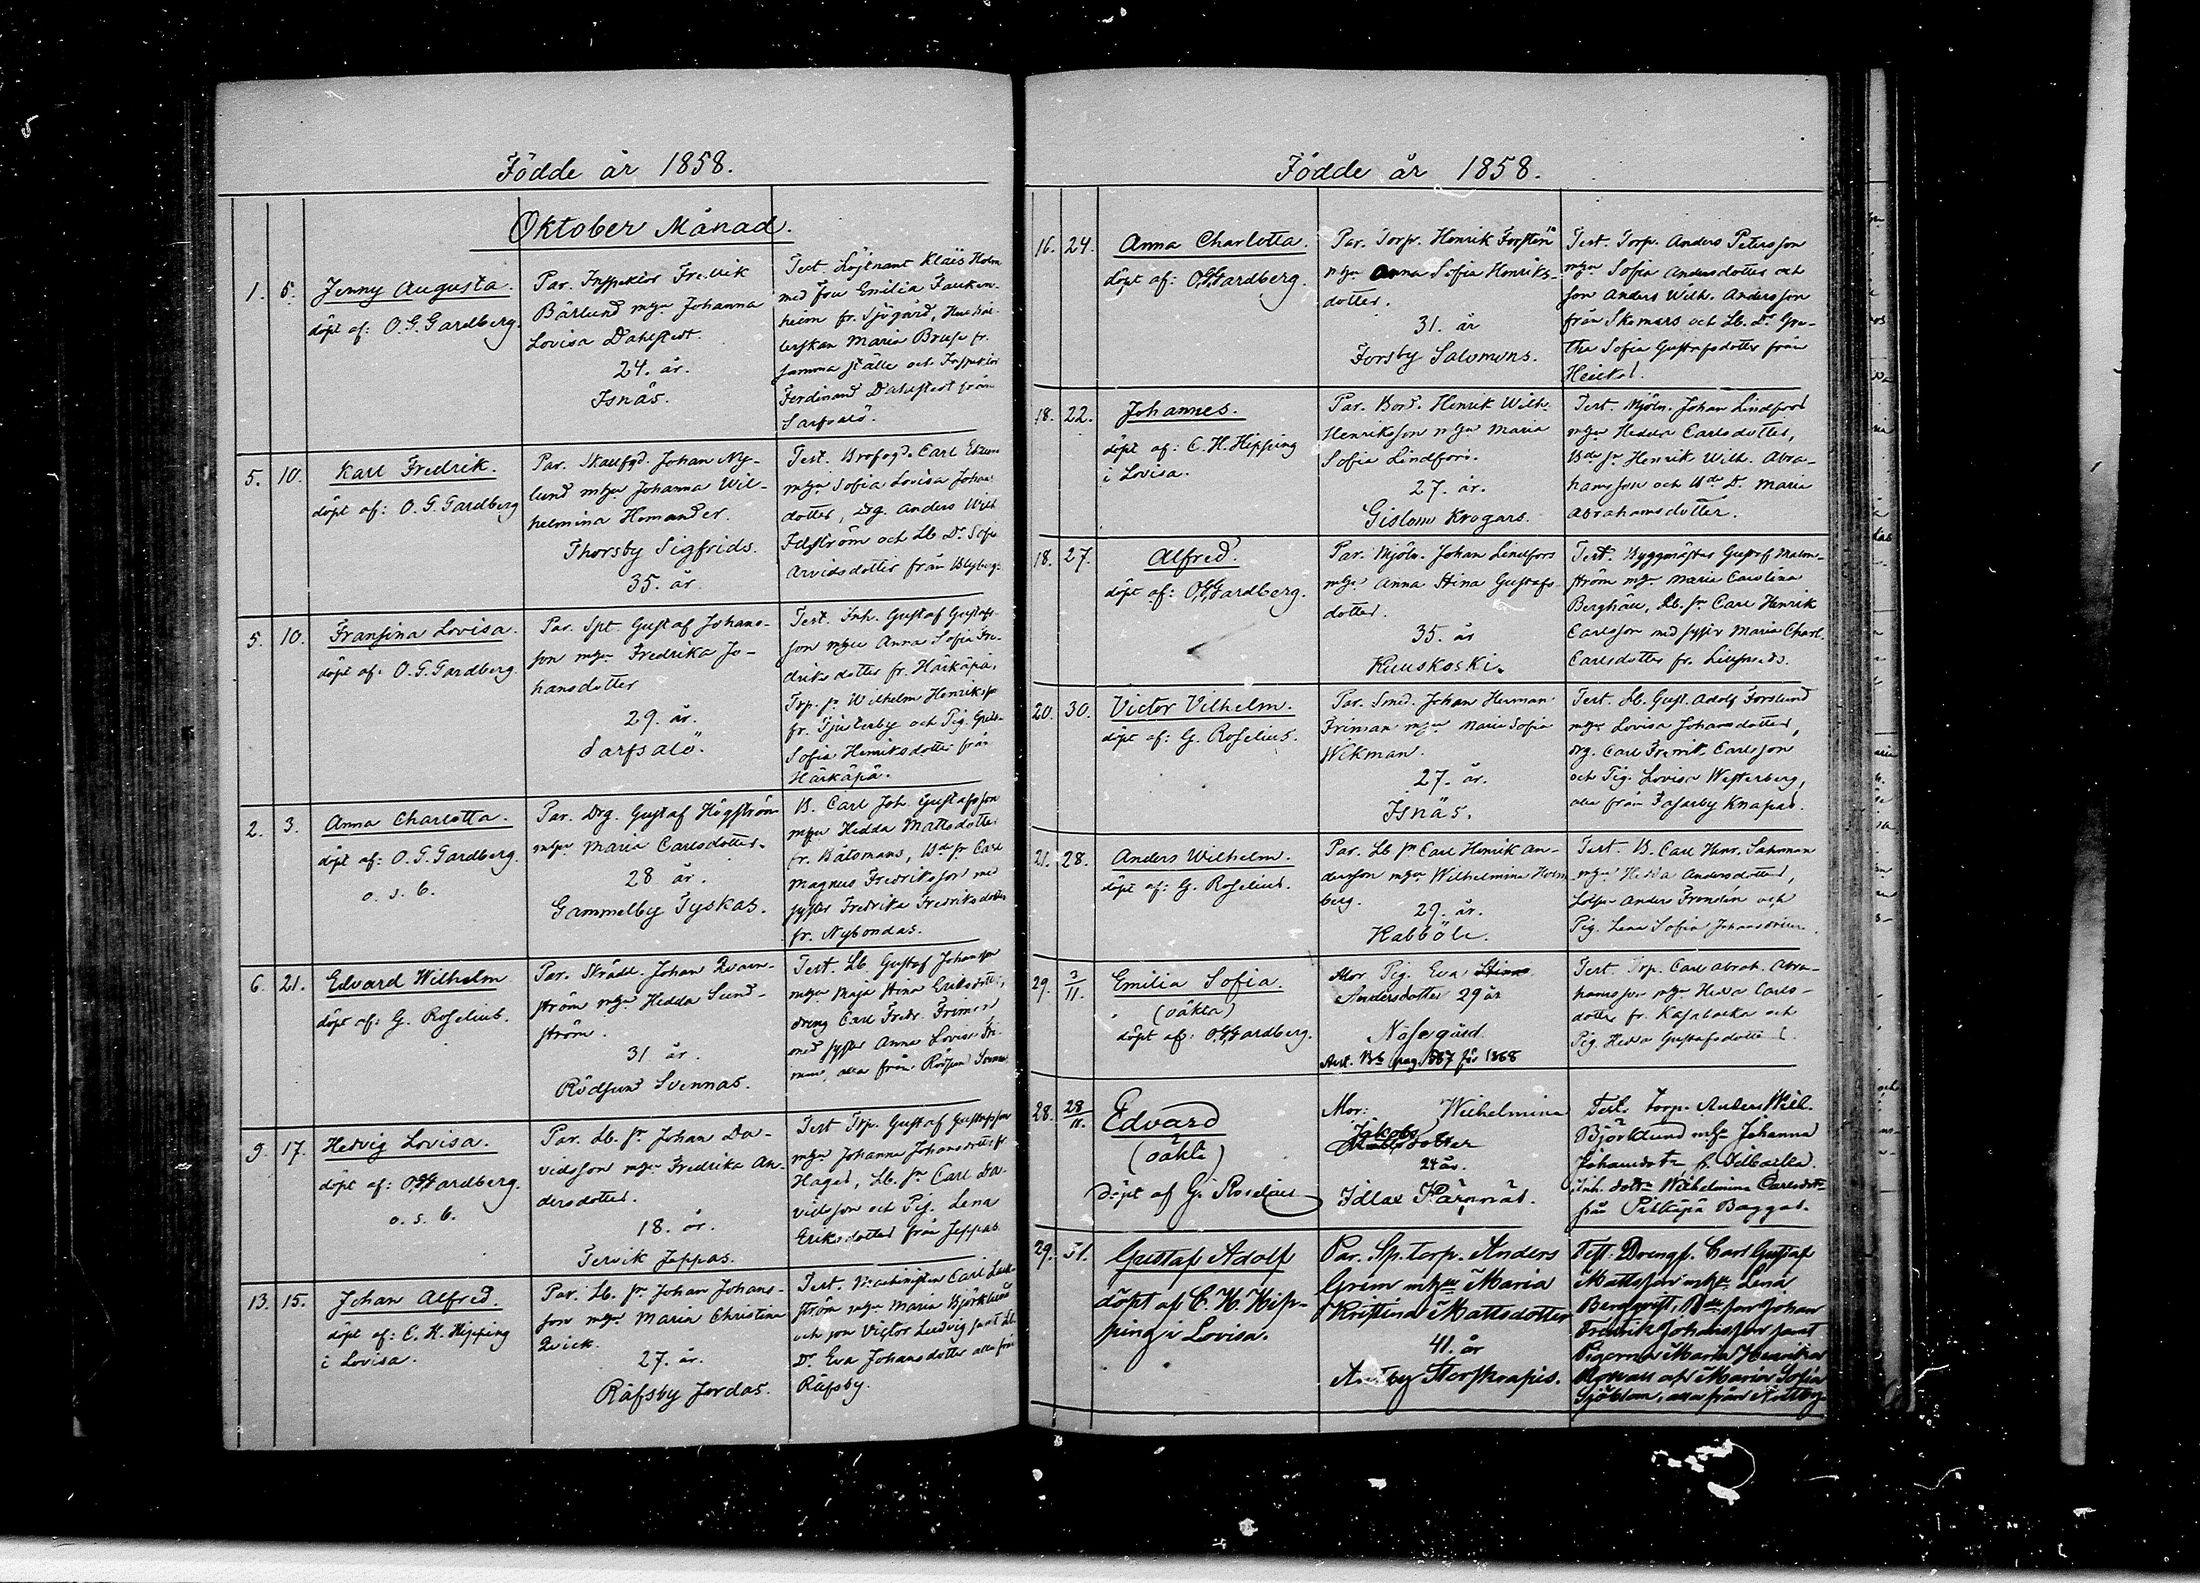 Födde år 1858.
Oktober Månad.
1. 5. Jenny Augusta.
döpt af: O. G. Gardberg.
Par. Inspektor Fredrik
Bärlund m hu Johanna
Lovisa Dahlstedt.
24. år.
Isnäs.
Test. Löjtnant Klaës Holm
med fru Emilia Fauken-
heim fr. Sjögård, Hushål-
lerskan Maria Bruse fr.
samma ställe och Inspektor
Ferdinand Dahlstedt från
Sarfsalö.
5. 10. Karl Fredrik.
döpt af: O. G. Gardberg
Par. Skallfgd. Johan Ny-
lund m hu Johanna Wil-
helmina Homander.
Thorsby Sigfrids.
35. år.
Test. Brofogd. Carl
m hu Sofia Lovisa Johans
dotter, Drg. Anders Wilh
och Lb Dr Sofia
Arvidsdotter från
5. 10. Fransina Lovisa.
döpt af: O. G. Gardberg.
Par. Spt Gustaf Johans-
son m hu Fredrika Jo-
hansdotter
29. år.
Sarfsalö.
Test. Inh. Gustaf Gustafs-
son m hu Anna Sofia Fre-
driksdotter fr. Härkäpä,
Trp. sn Wilhelm Henriksson
fr. Tjusterby och Pig. Greta
Sofia Henriksdotter från
Härkäpä.
2. 3. Anna Charlotta.
döpt af: O. G. Gardberg.
o. s. b.
Par. Drg. Gustaf Högström
m hu Maria Carlsdotter.
28 år.
Gammelby Tyskas.
B. Carl Joh. Gustafsson
m hu Hedda Mattsdotter
fr. Båtsmans, Bde sn Carl
Magnus Fredriksson med
syster Fredrika Fredriksdotter
fr. Nybondas.
6. 21. Edvard Wilhelm
döpt af: G. Roselius.
Par. Skrädd. Johan Qvarn-
ström m hu Hedda Sund-
ström.
31 år.
Rödsund Svennas.
Test. Lb. Gustaf Johansson
m hu Maja Stina Eriksdotter,
dreng Carl Fredr. Friman
med syster Anna Lovisa Fri-
man, alla från Rödsund
9. 17. Hedvig Lovisa.
döpt af: O. G. Gardberg.
o. s. b.
Par. Lb. sn Johan Da-
vidsson m hu Fredrika An-
dersdotter.
18. år.
Tervik Jeppas.
Test Trp. Gustaf Gustafsson
m hu Johanna Johansdotter fr.
Hages, Lb. sn Carl Da-
vidsson och Pig. Lena
Eriksdotter från Jeppas.
13. 15. Johan Alfred.
döpt af: C. H. Hipping
i Lovisa.
Par. Lb. sn Johan Johans-
son m hu Maria Christina
Qvick.
27. år.
Räfsby Jordas.
Test. Machinisten Carl
ström m hu Maria Björklund
och son Victor Ludvig samt Lb.
Dr Eva Johansdotter alla från
Räfsby.
Födde år 1858.
16. 24. Anna Charlotta.
döpt af: O. G. Gardberg.
Par. Torp. Henrik Forstén
m hu Anna Sofia Henriks-
dotter.
31. år
Forsby Salomons.
Test. Torp. Anders Petersson
m hu Sofia Andersdotter och
son Anders Wilh. Andersson
från Skomars och Lb. Dr Gre-
tha Sofia Gustafsdotter från
Heikas.
18. 22. Johannes.
döpt af: C. H. Hipping
i Lovisa.
Par. Bond. Henrik Wilh.
Henriksson m hu Maria
Sofia Lindfors.
27. år.
Gislom Krogars.
Test. Mjöln. Johan Lindfors
m hu Hedda Carlsdotter,
Bde sn Henrik Wilh. Abra-
hamsson och Bde D. Maria
Abrahamsdotter.
18. 27. Alfred.
döpt af: O. G. Gardberg.
Par. Mjöln. Johan Lindfors
m hu Anna Stina Gustafs
dotter.
35. år
Kuuskoski.
Test. Byggmäster Gustaf Malm-
ström m hu Maria Carolina
Berghäll, Lb. sn Carl Henrik
Carlsson med syster Maria Charl.
Carlsdotter fr. Liljends.
20. 30. Victor Vilhelm.
döpt af: G. Roselius.
Par. Smed. Johan Herman
Friman m hu Maria Sofia
Wikman.
27. år.
Isnäs.
Test. Lb. Gust. Adolf Forslund
m hu Lovisa Johansdotter,
drg. Carl Fredrik Carlsson
och Pig. Lovisa Westerberg,
alla från Fasarby Knapas.
21. 28. Anders Wilhelm.
döpt af: G. Roselius.
Par. Lb sn Carl Henrik An-
dersson m hu Wilhelmina Holm
berg.
29. år.
Kabböle.
Test. B. Carl Henr. Saloman
m hu Hedda Andersdotter,
Anders Frondén och
Pig. Lena Sofia Johansdotter.
29. 3/11. Emilia Sofia.
(oäkta)
döpt af: O. G. Gardberg.
Mor. Pig. Eva Stina
Andersdotter 29 år
Näsegård
Ant. Bb pag. 587 för 1868
Test. Trp. Carl Abrah. Abra-
hamsson m hu Hedda Carls-
dotter fr. Kasabacka och
Pig. Hedda Gustafsdotter
28. 28/11. Edvard
(oäkta)
döpt af G. Roselius
Mor: Wilhelmina
Jakobs
dotter
24 år.
Idlax Pärnäs.
Test. Torp. Anders Wilh.
Björklund m hu Johanna
Johansdotr fr.
Inh. dottr Wilhelmina Carlsdotr
från Pitkäpä Baggas.
29. 31. Gustaf Adolf
döpt af C. H. Hip-
ping i Lovisa.
Par. Sp. torp. Anders
Grim m hu Maria
Kristina Mattsdotter
41. år
Antby Storskrapis.
Test. Drengs. Carl Gustaf
Mattsson m hu Lena
Bergqvist, Bde son Johan
Fredrik Johansson samt
Pigorna Maria Henrika
och Maria Sofia
Sjöblom, alla från Antby